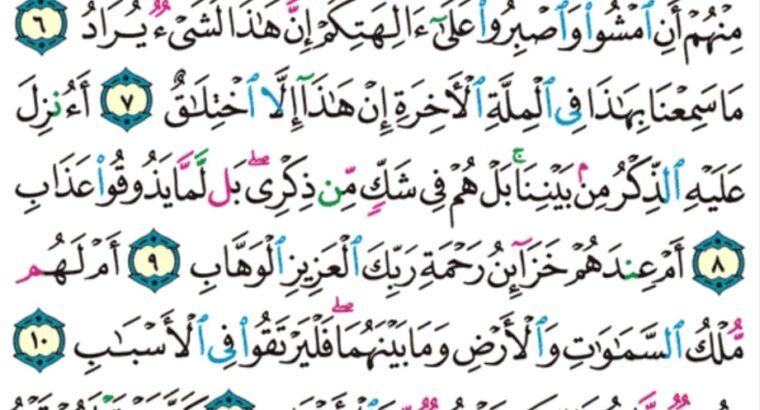 مِنْهُمْ أَنِ ٱمْشُوا۟ وَٱصْبِرُوا۟ عَلَىٰٓ ءَالِهَتِكُمْ إِنَّ هَـٰذَا لَشَىْءٌ يُرَادُ ٦
مَا سَمِعْنَا بِهَـٰذَا فِى ٱلْمِلَّةِ ٱلْـَٔاخِرَةِ إِنْ هَـٰذَآ إِلَّا ٱخْتِلَـٰقٌ ٧ أَءُنزِلَ
عَلَيْهِ ٱلذِّكْرُ مِنۢ بَيْنِنَا ۚ بَلْ هُمْ فِى شَكٍّ مِّن ذِكْرِى ۖ بَل لَّمَّا يَذُوقُوا۟ عَذَابِ
٨ أَمْ عِندَهُمْ خَزَآئِنُ رَحْمَةِ رَبِّكَ ٱلْعَزِيزِ ٱلْوَهَّابِ ٩ أَمْ لَهُم
مُّلْكُ ٱلسَّمَـٰوَٰتِ وَٱلْأَرْضِ وَمَا بَيْنَهُمَا ۖ فَلْيَرْتَقُوا۟ فِى ٱلْأَسْبَـٰبِ ١٠